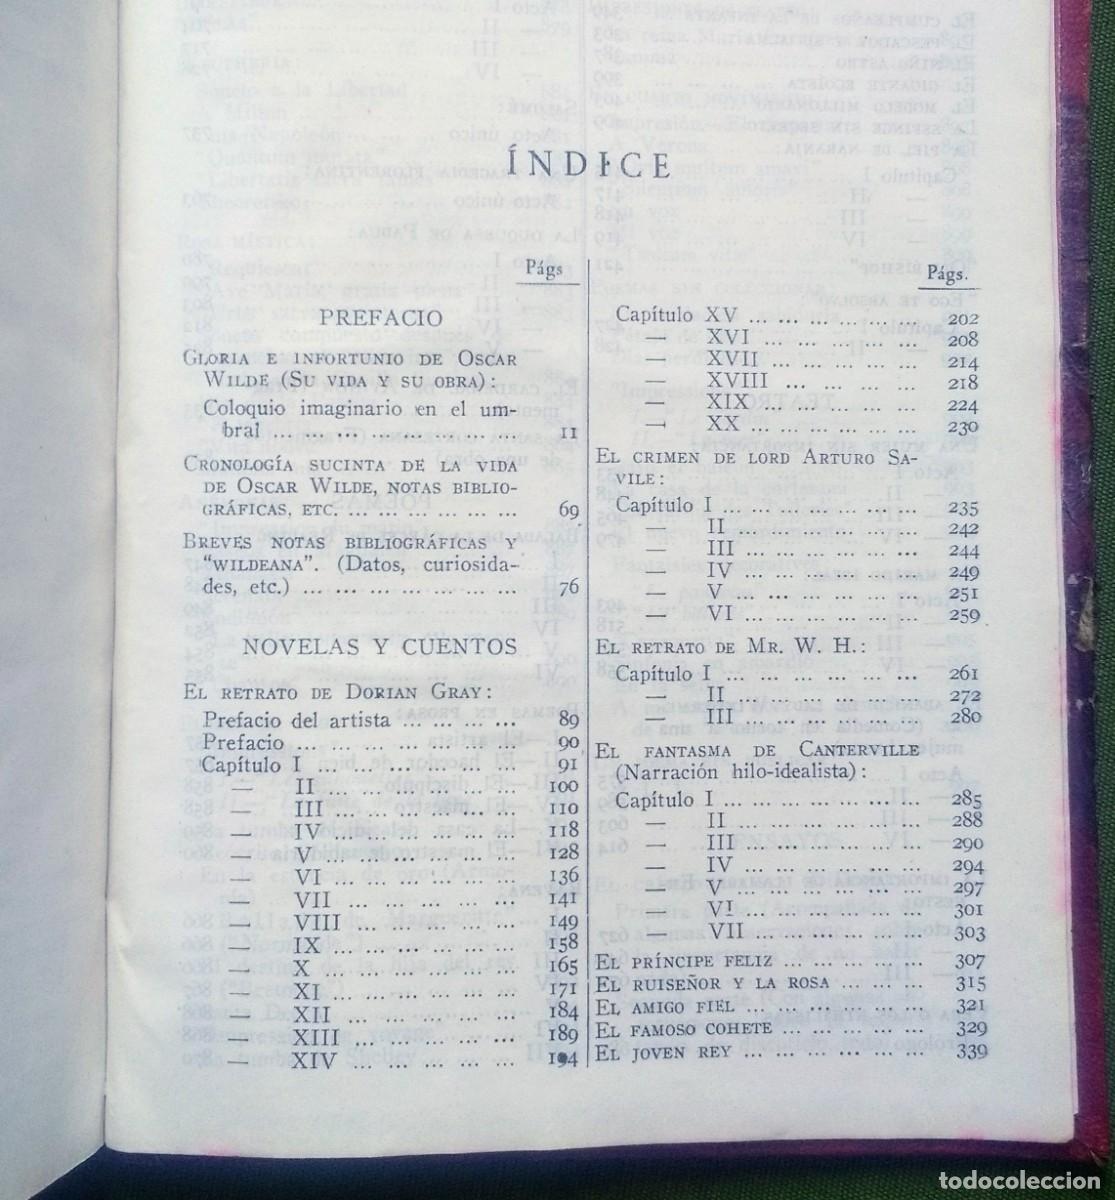 ÍNDICE
Págs
PREFACIO
GLORIA E INFORTUNIO DE OSCAR
WILDE (SU VIDA Y SU OBRA):
Coloquio imaginario en el um-
bral ... ... ... ... ... ... ... ... 11
CRONOLOGÍA SUCINTA DE LA VIDA
DE OSCAR WILDE, NOTAS BIBLIO-
GRÁFICAS, ETC. ... ... ... ... ... 69
BREVES NOTAS BIBLIOGRÁFICAS Y
"WILDEANA". (Datos, curiosida-
des, etc.) ... ... ... ... ... ... 76
NOVELAS Y CUENTOS
EL RETRATO DE DORIAN GRAY:
Prefacio del artista ... ... ... ... 89
Prefacio ... ... ... ... ... ... ... 90
Capítulo I ... ... ... ... ... ... 91
— II ... ... ... ... ... ... 100
— III ... ... ... ... ... ... 110
— IV ... ... ... ... ... ... 118
— V ... ... ... ... ... ... 128
— VI ... ... ... ... ... ... 136
— VII ... ... ... ... ... ... 141
— VIII ... ... ... ... ... 149
— IX ... ... ... ... ... ... 158
— X ... ... ... ... ... ... 165
— XI ... ... ... ... ... ... 171
— XII ... ... ... ... ... ... 184
— XIII ... ... ... ... ... 189
— XIV ... ... ... ... ... 194
Págs.
Capítulo XV ... ... ... ... ... 202
— XVI ... ... ... ... ... 208
— XVII ... ... ... ... ... 214
— XVIII ... ... ... ... ... 218
— XIX ... ... ... ... ... 224
— XX ... ... ... ... ... 230
EL CRIMEN DE LORD ARTURO SA-
VILE:
Capítulo I ... ... ... ... ... ... 235
— II ... ... ... ... ... ... 242
— III ... ... ... ... ... ... 244
— IV ... ... ... ... ... ... 249
— V ... ... ... ... ... ... 251
— VI ... ... ... ... ... ... 259
EL RETRATO DE MR. W. H.:
Capítulo I ... ... ... ... ... ... 261
— II ... ... ... ... ... ... 272
— III ... ... ... ... ... ... 280
EL FANTASMA DE CANTERVILLE
(Narración hilo-idealista):
Capítulo I ... ... ... ... ... ... 285
— II ... ... ... ... ... ... 288
— III ... ... ... ... ... ... 290
— IV ... ... ... ... ... ... 294
— V ... ... ... ... ... ... 297
— VI ... ... ... ... ... ... 301
— VII ... ... ... ... ... ... 303
EL PRÍNCIPE FELIZ ... ... ... ... 307
EL RUISEÑOR Y LA ROSA ... ... ... 315
EL AMIGO FIEL ... ... ... ... ... 321
EL FAMOSO COHETE ... ... ... ... 329
EL JOVEN REY ... ... ... ... ... 339
todocoleccion